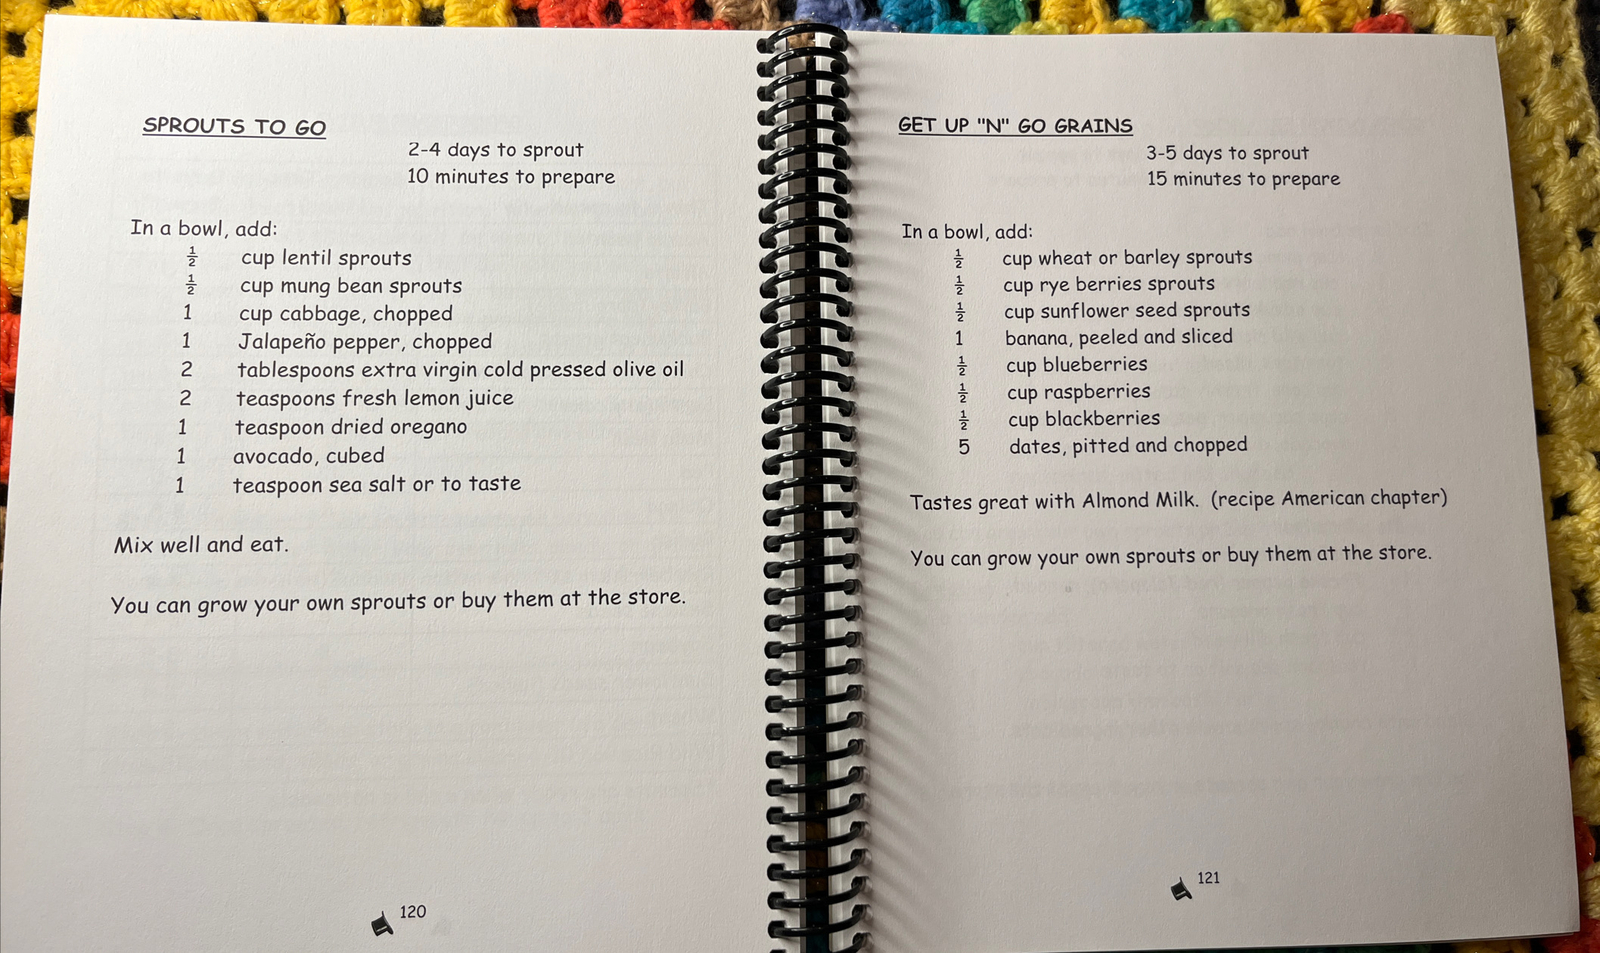 SPROUTS TO GO
2-4 days to sprout
10 minutes to prepare
In a bowl, add:
½ cup lentil sprouts
½ cup mung bean sprouts
1 cup cabbage, chopped
1 Jalapeño pepper, chopped
2 tablespoons extra virgin cold pressed olive oil
2 teaspoons fresh lemon juice
1 teaspoon dried oregano
1 avocado, cubed
1 teaspoon sea salt or to taste
Mix well and eat.
You can grow your own sprouts or buy them at the store.
120
GET UP "N" GO GRAINS
3-5 days to sprout
15 minutes to prepare
In a bowl, add:
½ cup wheat or barley sprouts
½ cup rye berries sprouts
½ cup sunflower seed sprouts
1 banana, peeled and sliced
½ cup blueberries
½ cup raspberries
½ cup blackberries
5 dates, pitted and chopped
Tastes great with Almond Milk. (recipe American chapter)
You can grow your own sprouts or buy them at the store.
121